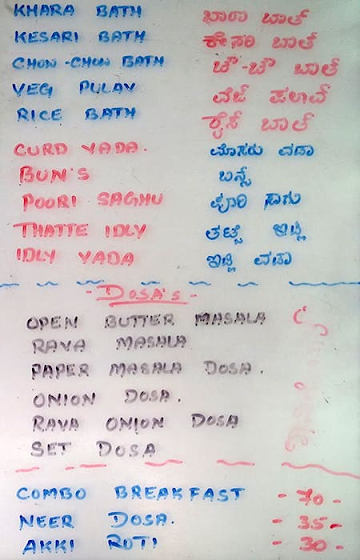 KHARA BATH ಖಾರಾ ಬಾತ್
KESARI BATH ಕೇಸರಿ ಬಾತ್
CHOW-CHOW BATH ಚೌ-ಚೌ ಬಾತ್
VEG PULAV ವೆಜ್ ಪಲಾವ್
RICE BATH ರೈಸ್ ಬಾತ್
CURD VADA. ಮೊಸರು ವಡಾ
BUN'S ಬನ್ಸ್
POORI SAGHU ಪೂರಿ ಸಾಗು
THATTE IDLY ತಟ್ಟೆ ಇಡ್ಲಿ
IDLY VADA ಇಡ್ಲಿ ವಡಾ
- DOSA'S -
OPEN BUTTER MASALA
RAVA MASALA
PAPER MASALA DOSA.
ONION DOSA.
RAVA ONION DOSA
SET DOSA
COMBO BREAKFAST - 70 -
NEER DOSA. - 35 -
AKKI ROTI - 30 -